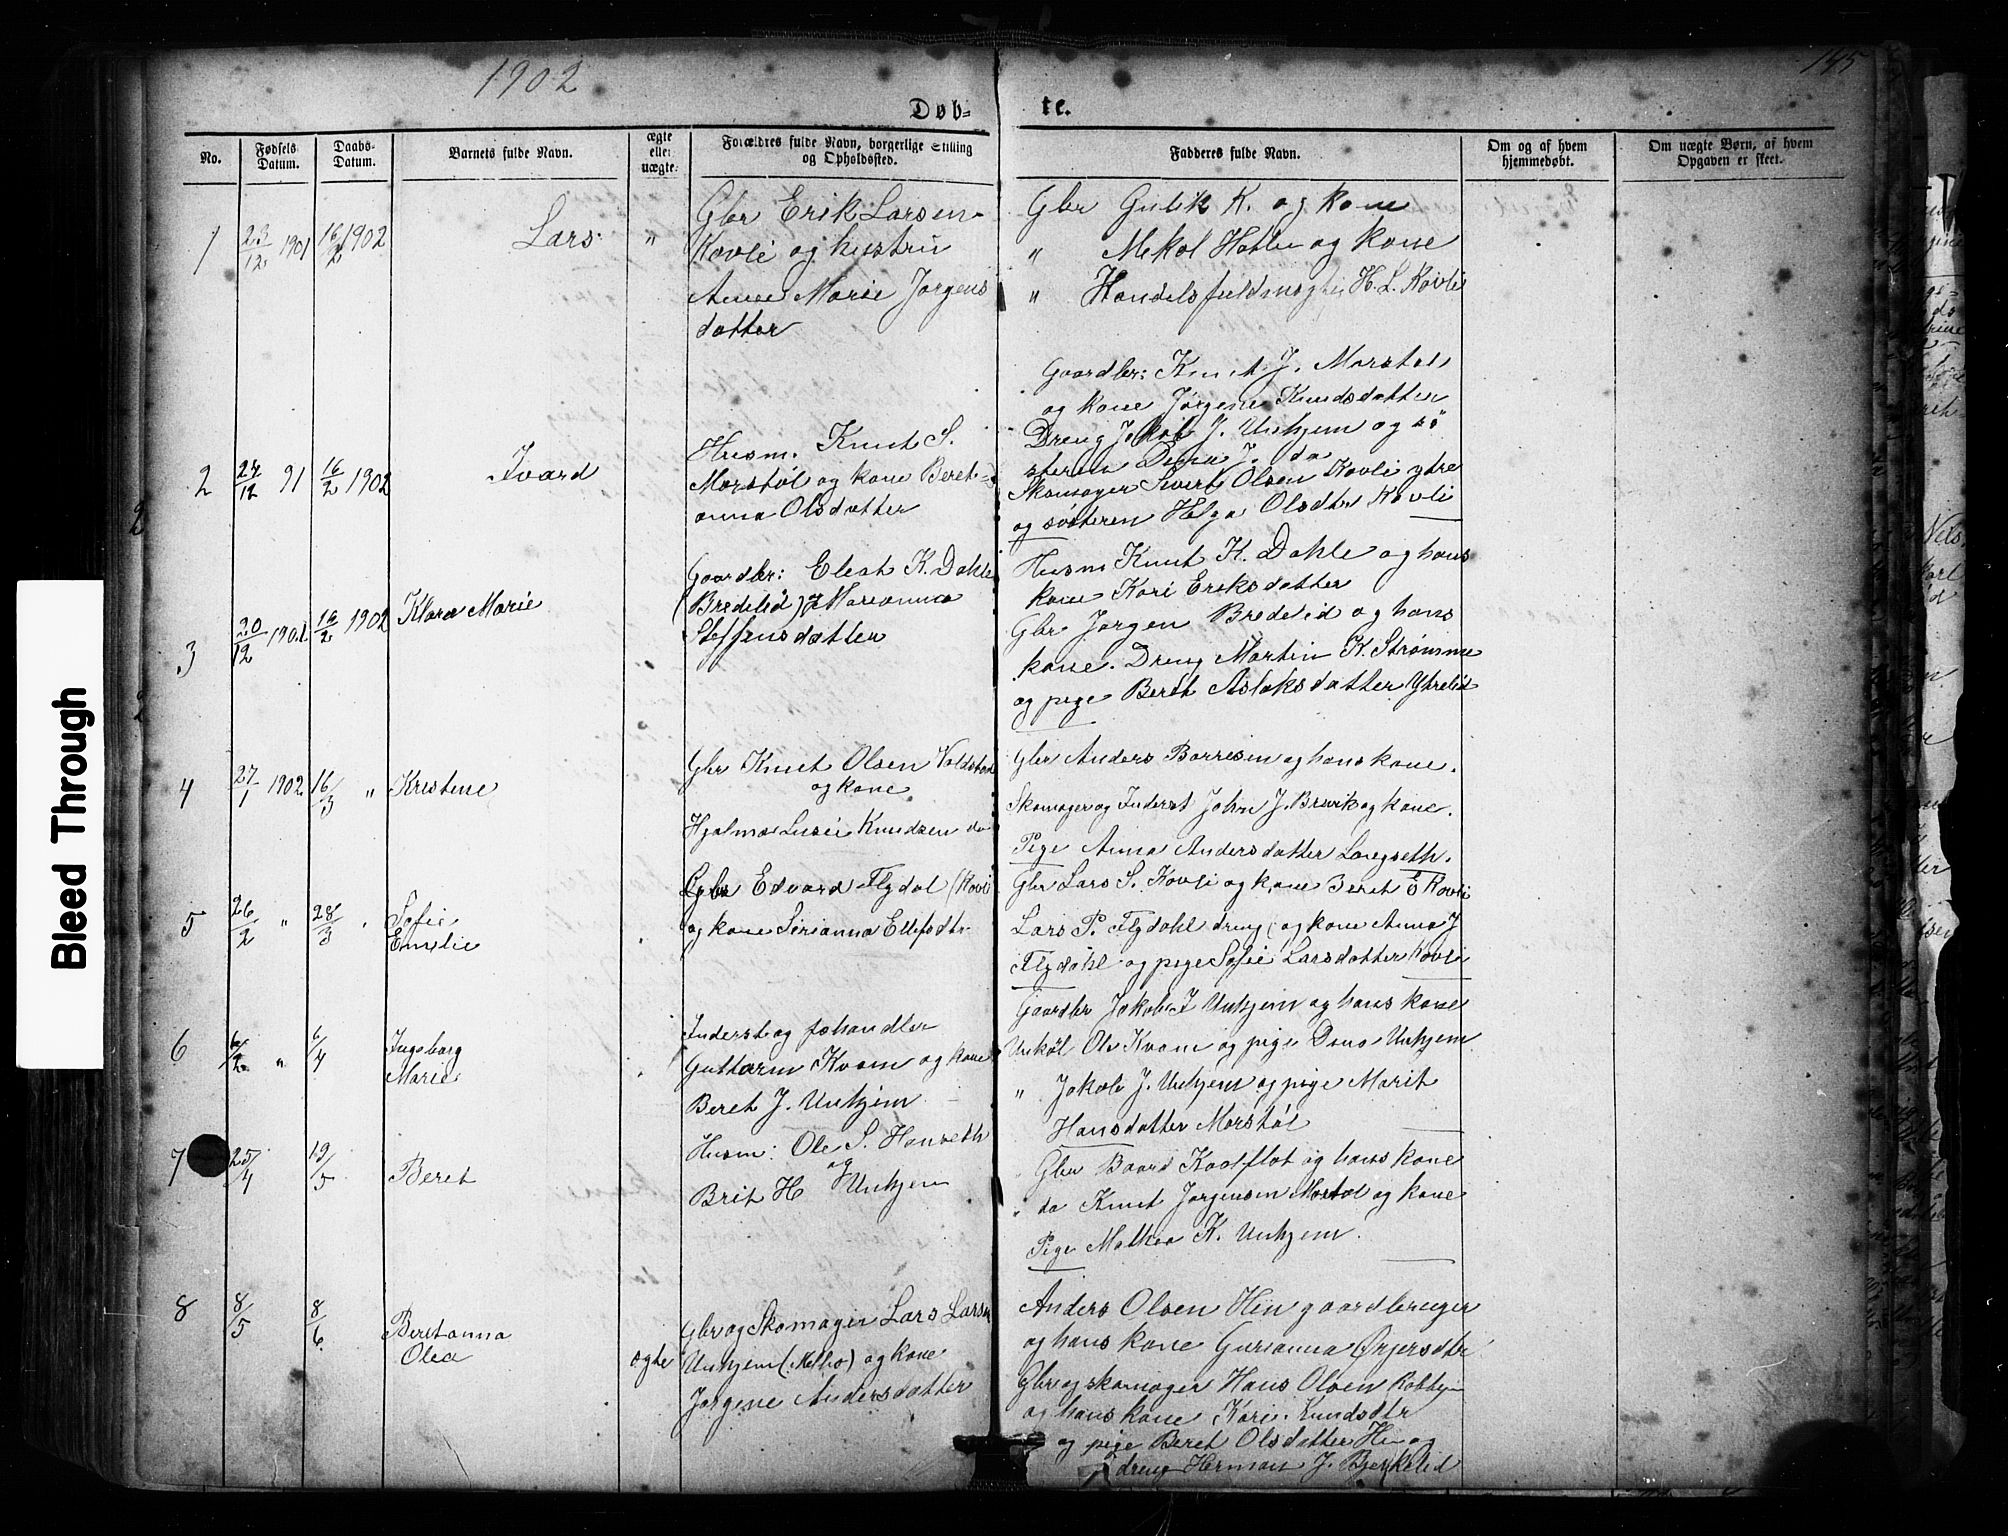 1902
145
Døbte.
No.
Fødsels Datum.
Daabs-Datum.
Barnets fulde Navn.
ægte eller uægte.
Forældres fulde Navn, borgerlige Stilling og Opholdssted.
Fadderes fulde Navn.
Om og af hvem hjemmedøbt.
Om uægte Børn, af hvem Opgaven er skeet.
1
23/12 1901
16/2 1902
Lars
"
Gbr Erik Larsen
Kovli og hustru
Anne Marie Jørgens
datter
Gbr Gulik K. og kone
" Mekal Hatle og kone
" Handelsfuldmægtig H. L. Kovli
2
24/12 91
16/2 1902
Ivard
Husm. Knut S.
Morstøl og kone Beret-
anna Olsdatter
Gaardbr: Knut J. Morstøl
og kone Jørgene Knudsdatter
Dreng Jakob J. Unhjem og sø
steren Dina J. do
Skomager Sivert Olsen Kovli ytre
og søsteren Helga Olsdtr Kovli
3
20/12 1901
16/2 1902
Klara Marie
Gaardbr: Elest K. Dahle
(Bredelid) & Marianna
Steffensdatter
Husm Knut K. Dahle og hans
kone Kari Eriksdatter
Gbr Jørgen Bredelid og hans
kone. Dreng Martin K. Strømme
og pige Beret Aslaksdatter Ytrelid
4
27/1 1902
16/3 "
Kristine
Gbr Knut Olsen Voldstad
og kone
Hjalma Lusie Knudsen do
Gbr Anders Borresen og hans kone.
Skomager og Inderst John J. Brevik og kone.
Pige Anna Andersdatter Langseth.
5
26/2 "
28/3 "
Sofie
Emelie
Gbr Edvard Flydal (Kovli
og kone Serianna Ellefsdtr
Gbr Lars S. Kovli og kone Beret E Kovli
Lars P. Flydahl dreng (og kone Anna J
Flydahl og pige Sofie Larsdatter Kovli
6
6/2 "
6/4
Ingeborg
Marie
Inderst og fehandler
Guttorm Kvam og kone
Beret J. Unhjem
Gaardbr Jakob J Unhjem og hans kone
Unkøl Ole Kvam og pige Dina Unhjem
" Jakob J. Unhjem og pige Marit
Hansdatter Morstøl
7
25/4
19/5
Beret
Husm: Ole S. Hanseth
og
Brit H Unhjem
Gbr Baard Kaalflot og hans kone
" do Knut Jørgensen Morstøl og kone
Pige Mathea K. Unhjem.
8
8/5
8/6
Beretanna
Olea
ægte
Gbr og Skomager Lars Larsen
Unhjem (Melbo) og kone
Jørgene Andersdatter
Anders Olsen Hin gaardbruger
og hans kone Gurianna Ørjersdtr
Gbr og skomager Hans Olsen
og hans kone Kari
og pige Beret Olsdatter Hin og
dreng Herman J. Bjerkelid
2
2
Bleed Through